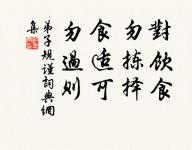 對飲食
勿揀择
食适可
勿過则
弟子規謹詞典網
集